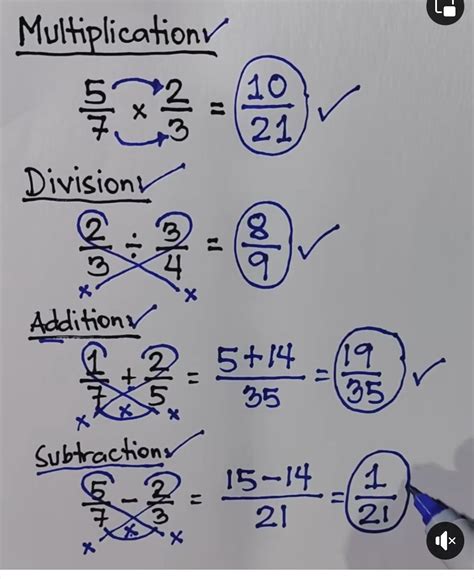 Multiplication ✓
5/7 × 2/3 = 10/21 ✓
Division ✓
2/3 ÷ 3/4 = 8/9 ✓
x x
Addition ✓
1/7 + 2/5 = 5+14/35 = 19/35 ✓
x x x
Subtraction ✓
5/7 - 2/3 = 15-14/21 = 1/21
x x x